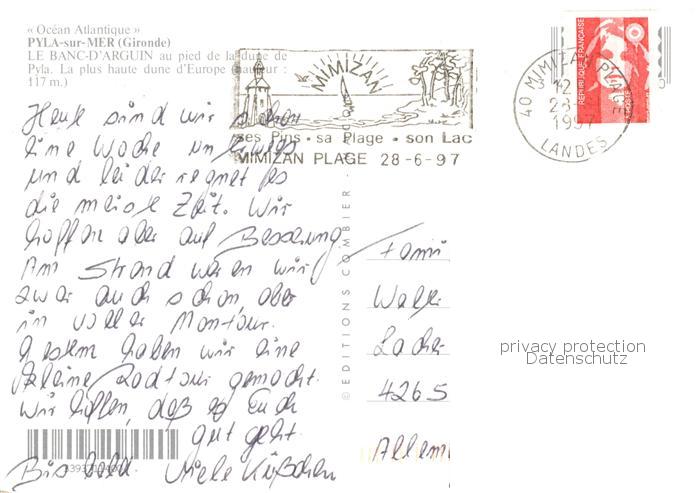 « Océan Atlantique »
PYLA-sur-MER (Gironde)
LE BANC-D'ARGUIN au pied de la dune de
Pyla. La plus haute dune d'Europe (hauteur :
117 m.)
MIMIZAN
ses Pins • sa Plage • son Lac
MIMIZAN PLAGE 28-6-97
40 MIMIZAN PLAGE
12
28
1997
LANDES
RÉPUBLIQUE FRANÇAISE
Heute sind wir schon
eine Woche unterwegs
und leider regnet es
die meiste Zeit. Wir
hoffen aber auf Besserung
Am Strand waren wir
zwar auch schon, aber
in voller Montour.
Gestern haben wir eine
kleine Radtour gemacht.
Wir hoffen, daß es Euch
gut geht.
Bis bald Viele Küßchen
© EDITIONS COMBIER -
Fami
Walt
4265
Allem
privacy protection
Datenschutz